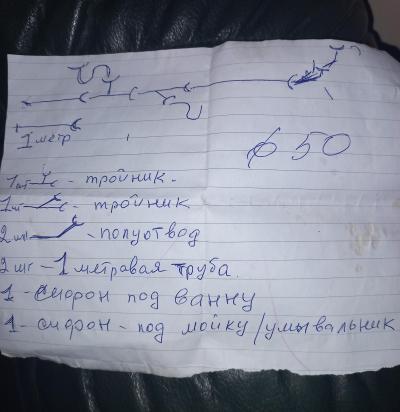 1 метр
ф 50
1шт - тройник.
1шт - тройник
2шт - полуотвод
2шт - 1 метровая труба.
1 - сифон под ванну
1 - сифон - под мойку/умывальник